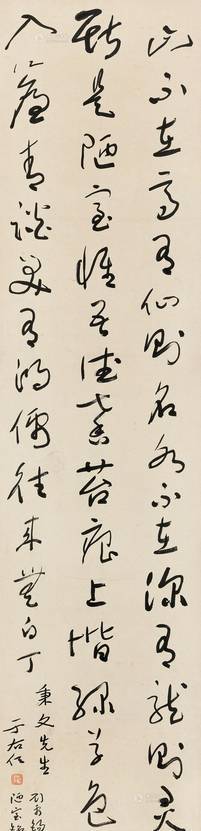 山不在高有仙則名水不在深有龍則靈
斯是陋室惟吾德馨苔痕上階綠草色
入簾青談笑有鴻儒往來無白丁
秉文先生
劉禹錫
陋室銘
于右任